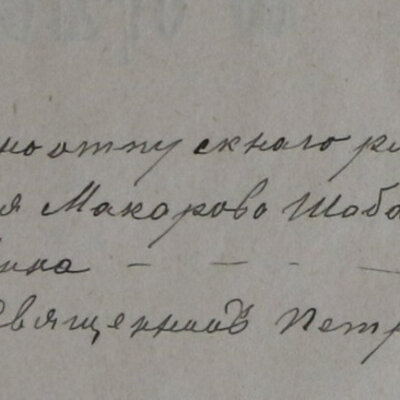 ноотпускнаго ря
я Макарово Шаба
ина — — — —
Священникъ Петр